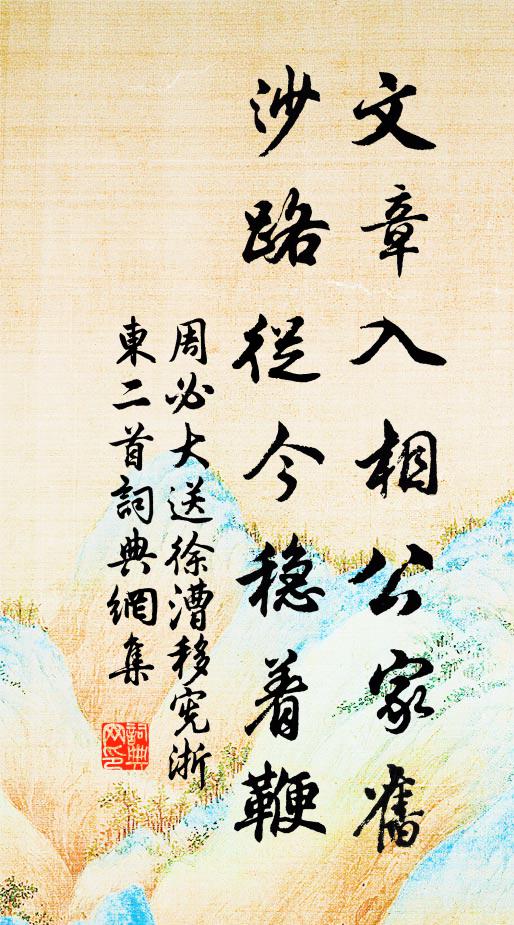 文章入相公家舊
沙路從今穏着鞭
周必大送徐漕移宪浙
東二首詞典網集
詞典
网印